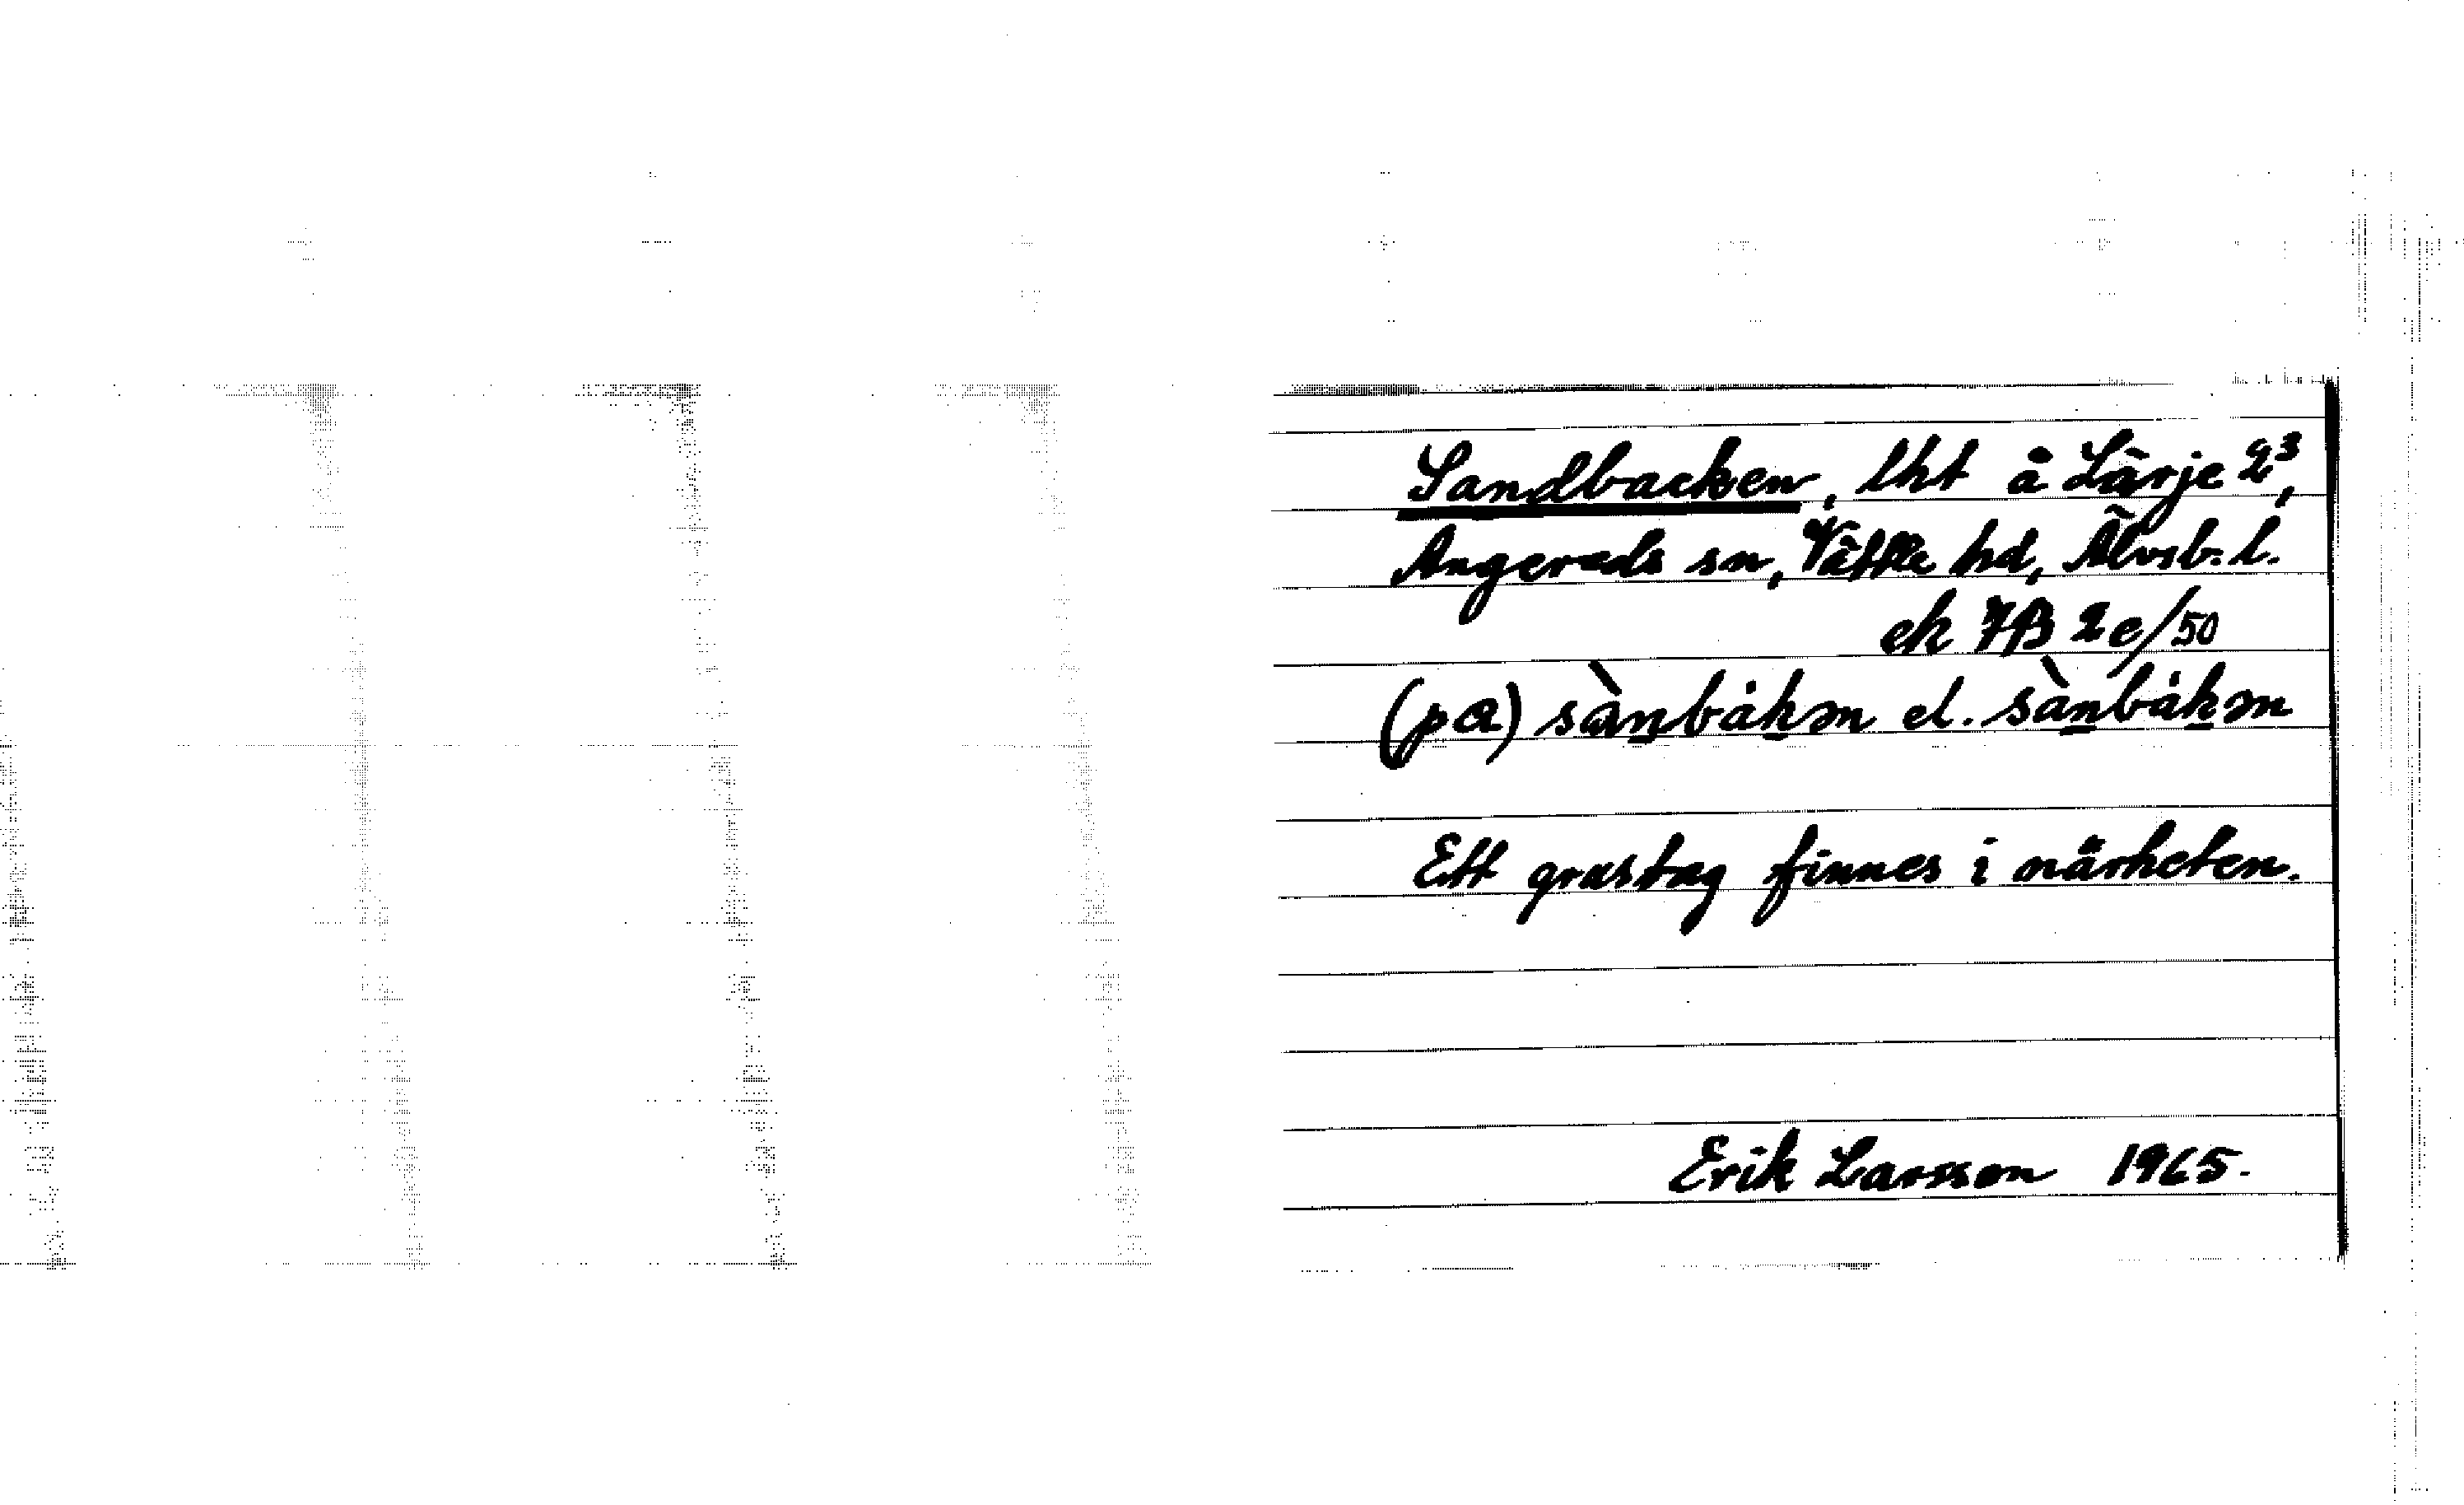 Sandbacken, lht å Lärje 2³,
Angereds sn, Vättle hd, Älvsb. l.
ek 7B 2c/50
(pa) sànbåkən el. sànbåkən
Ett grustag finnes i närheten.
Erik Larsson 1965.